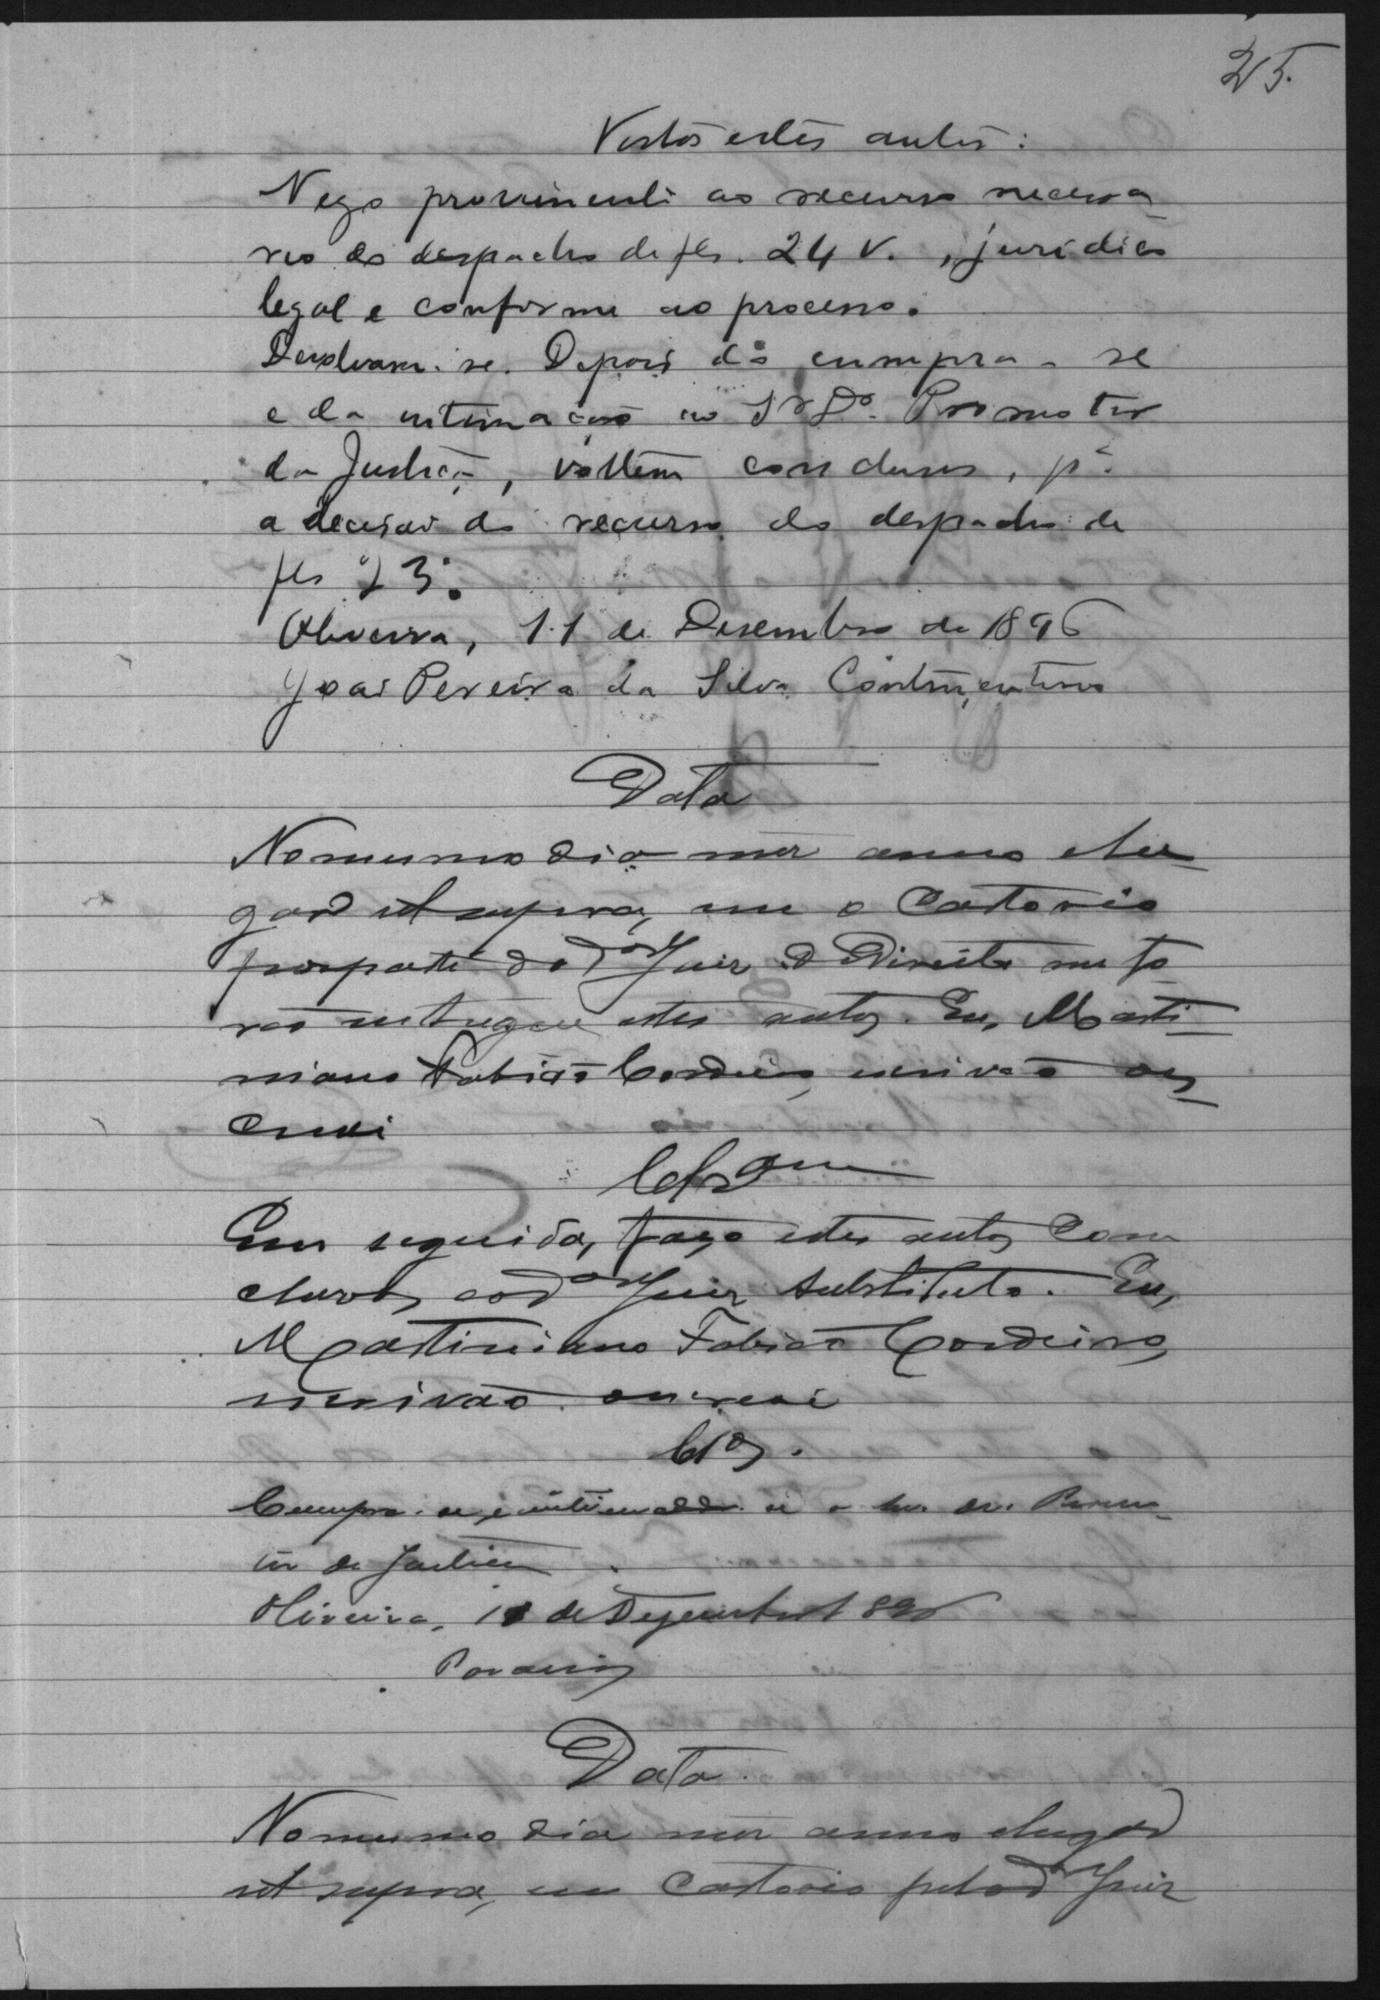 25.
Vistos estes autos:
Nego provimento ao recurso necessa-
rio do despacho de fls. 24 v., juridico
legal e conforme ao processo.
Devolvam-se. Depois do cumpra-se
e da intimação ao Sr Dr. Promotor
da Justiça, voltem conclusos, pa.
a decisão do recurso do despacho de
fls 23.
Oliveira, 11 de Desembro de 1896
João Pereira da Silva Continentino
Data
No mesmo dia mez anno e lu-
gar ut supra, em o Cartorio
por parte do dor Juiz de Direito me fo
rão entregues estes autos. Eu, Marti-
niano Fabião Cordeiro, escrivão es-
crevi
Clsam
Em seguida, faço estes autos con
clusos ao dor Juiz Substituto. Eu,
Martiniano Fabião Cordeiro,
escrivão escrevi
Clos.
Cumpra-se, e intime-se o snr. dr. Promo-
tor da Justiça.
Oliveira, 11 de Dezembro 1896
Data
No mesmo dia mez anno e lugar
ut supra, em Cartorio pelo dor Juiz